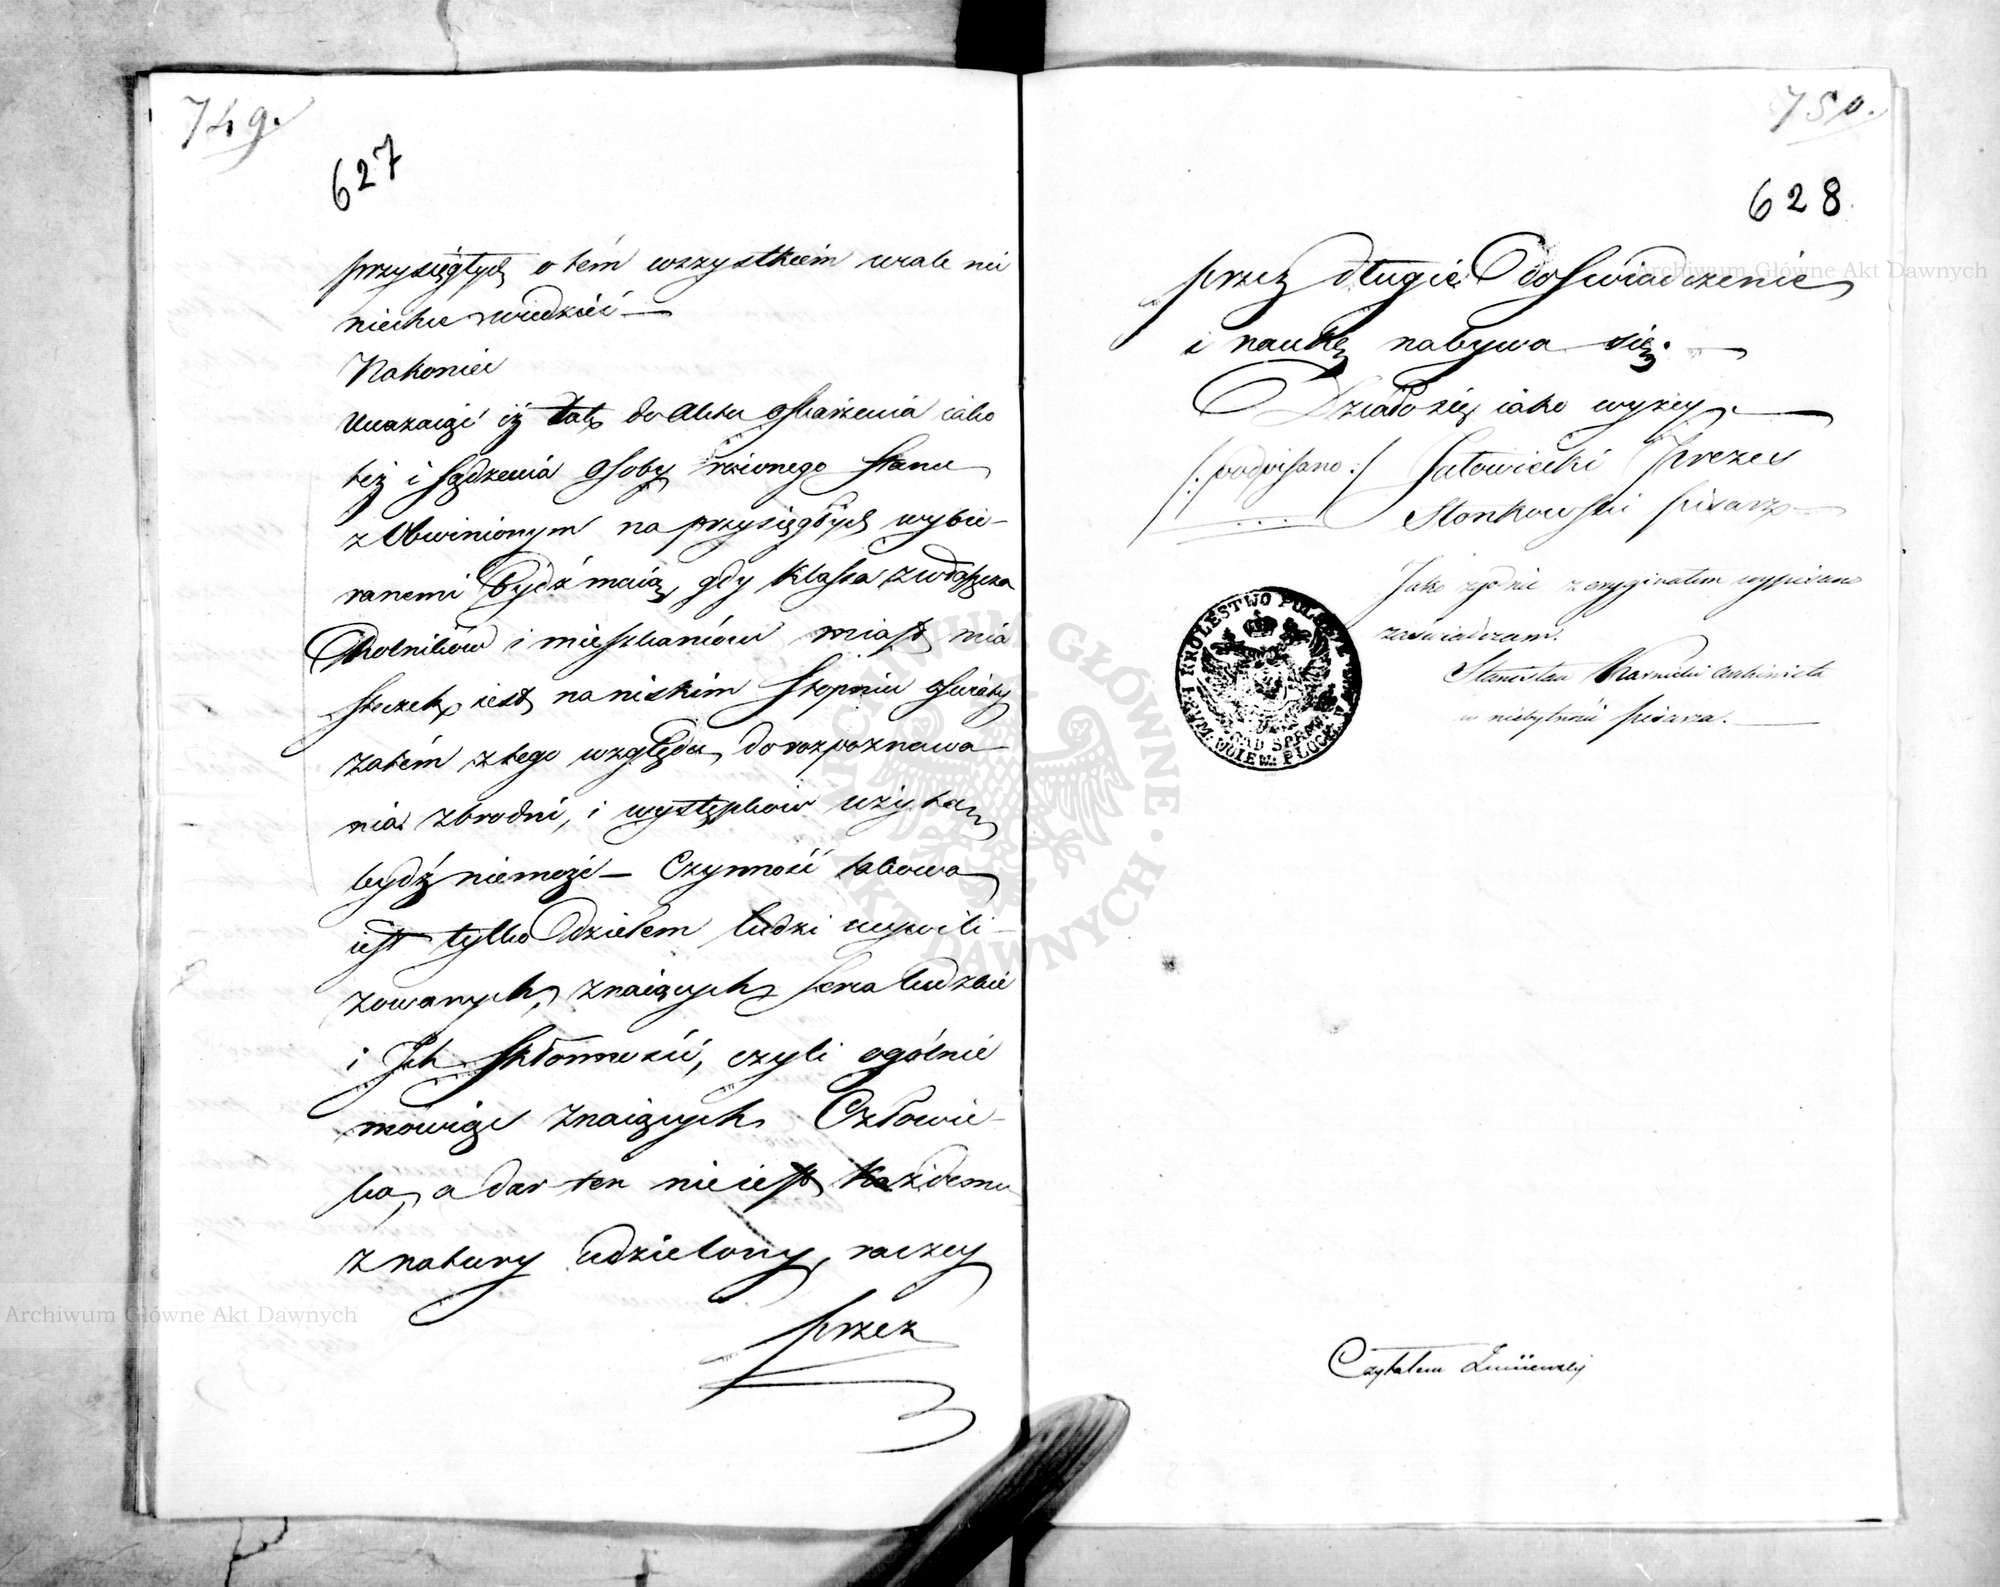 749.
627
przysięgłych o tém wszystkiém wcale nie
niechce wiedzieć —
Nakoniec
Uważaiąc iż tak do Aktu oskarżenia iako
też i sądzenia Osoby równego stanu
z Obwinionym na przysięgłych wybie-
ranemi bydź maią, gdy klassa zwłaszcza
Rolników i mieszkańców miast mia
steczek, iest na niskim stopniu oświaty
zatém z tego względu do rozpoznawa-
nia zbrodni, i występków użytą
bydź niemoże — Czynność takowa
iest tylko dziełem ludzi ucywili-
zowanych, znaiących serca ludzkie
i Ich skłonność, czyli ogólnie
mówiąc znaiących Człowie-
ka, a dar ten nie iest każdemu
z natury udzielony, raczey
przez
750.
628
przez długie doświadczenie
i naukę nabywa się. —
Działo się iako wyżey. —
/:podpisano:/ Sutowiecki Prezes
Słonkowski pisarz —
Jako zgodnie z oryginałem wypisane
zaświadczam.
Stanisław Karnicki Archiwista
w niebytności pisarza. —
KROLESTWO POLSKIE
SĄD SPRAW
KRYM: WOIEW: PŁOCK
Czytałem
Archiwum Główne Akt Dawnych
Archiwum Główne Akt Dawnych
ARCHIWUM GŁÓWNE AKT DAWNYCH